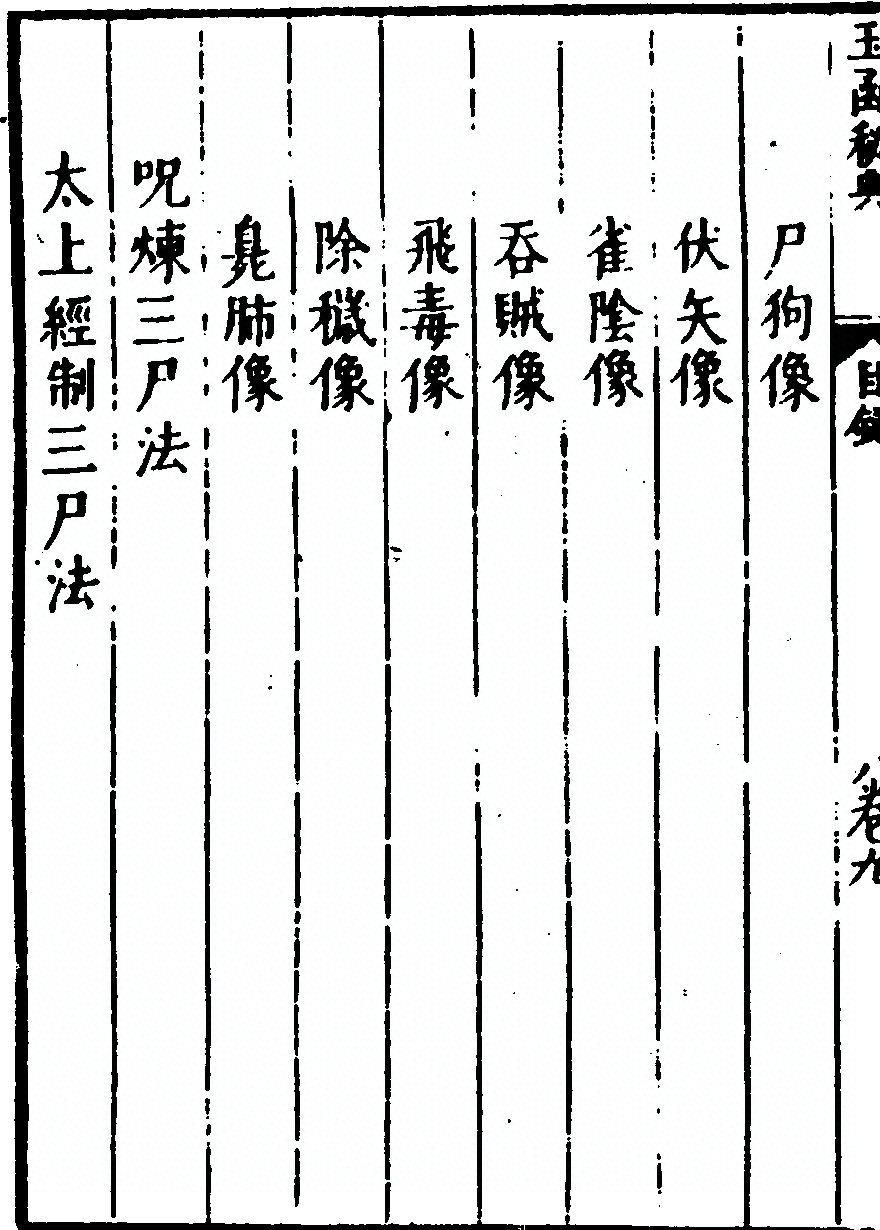 玉函秘典
目錄
八卷九
尸狗像
伏矢像
雀陰像
吞賊像
飛毒像
除穢像
臭肺像
呪煉三尸法
太上經制三尸法